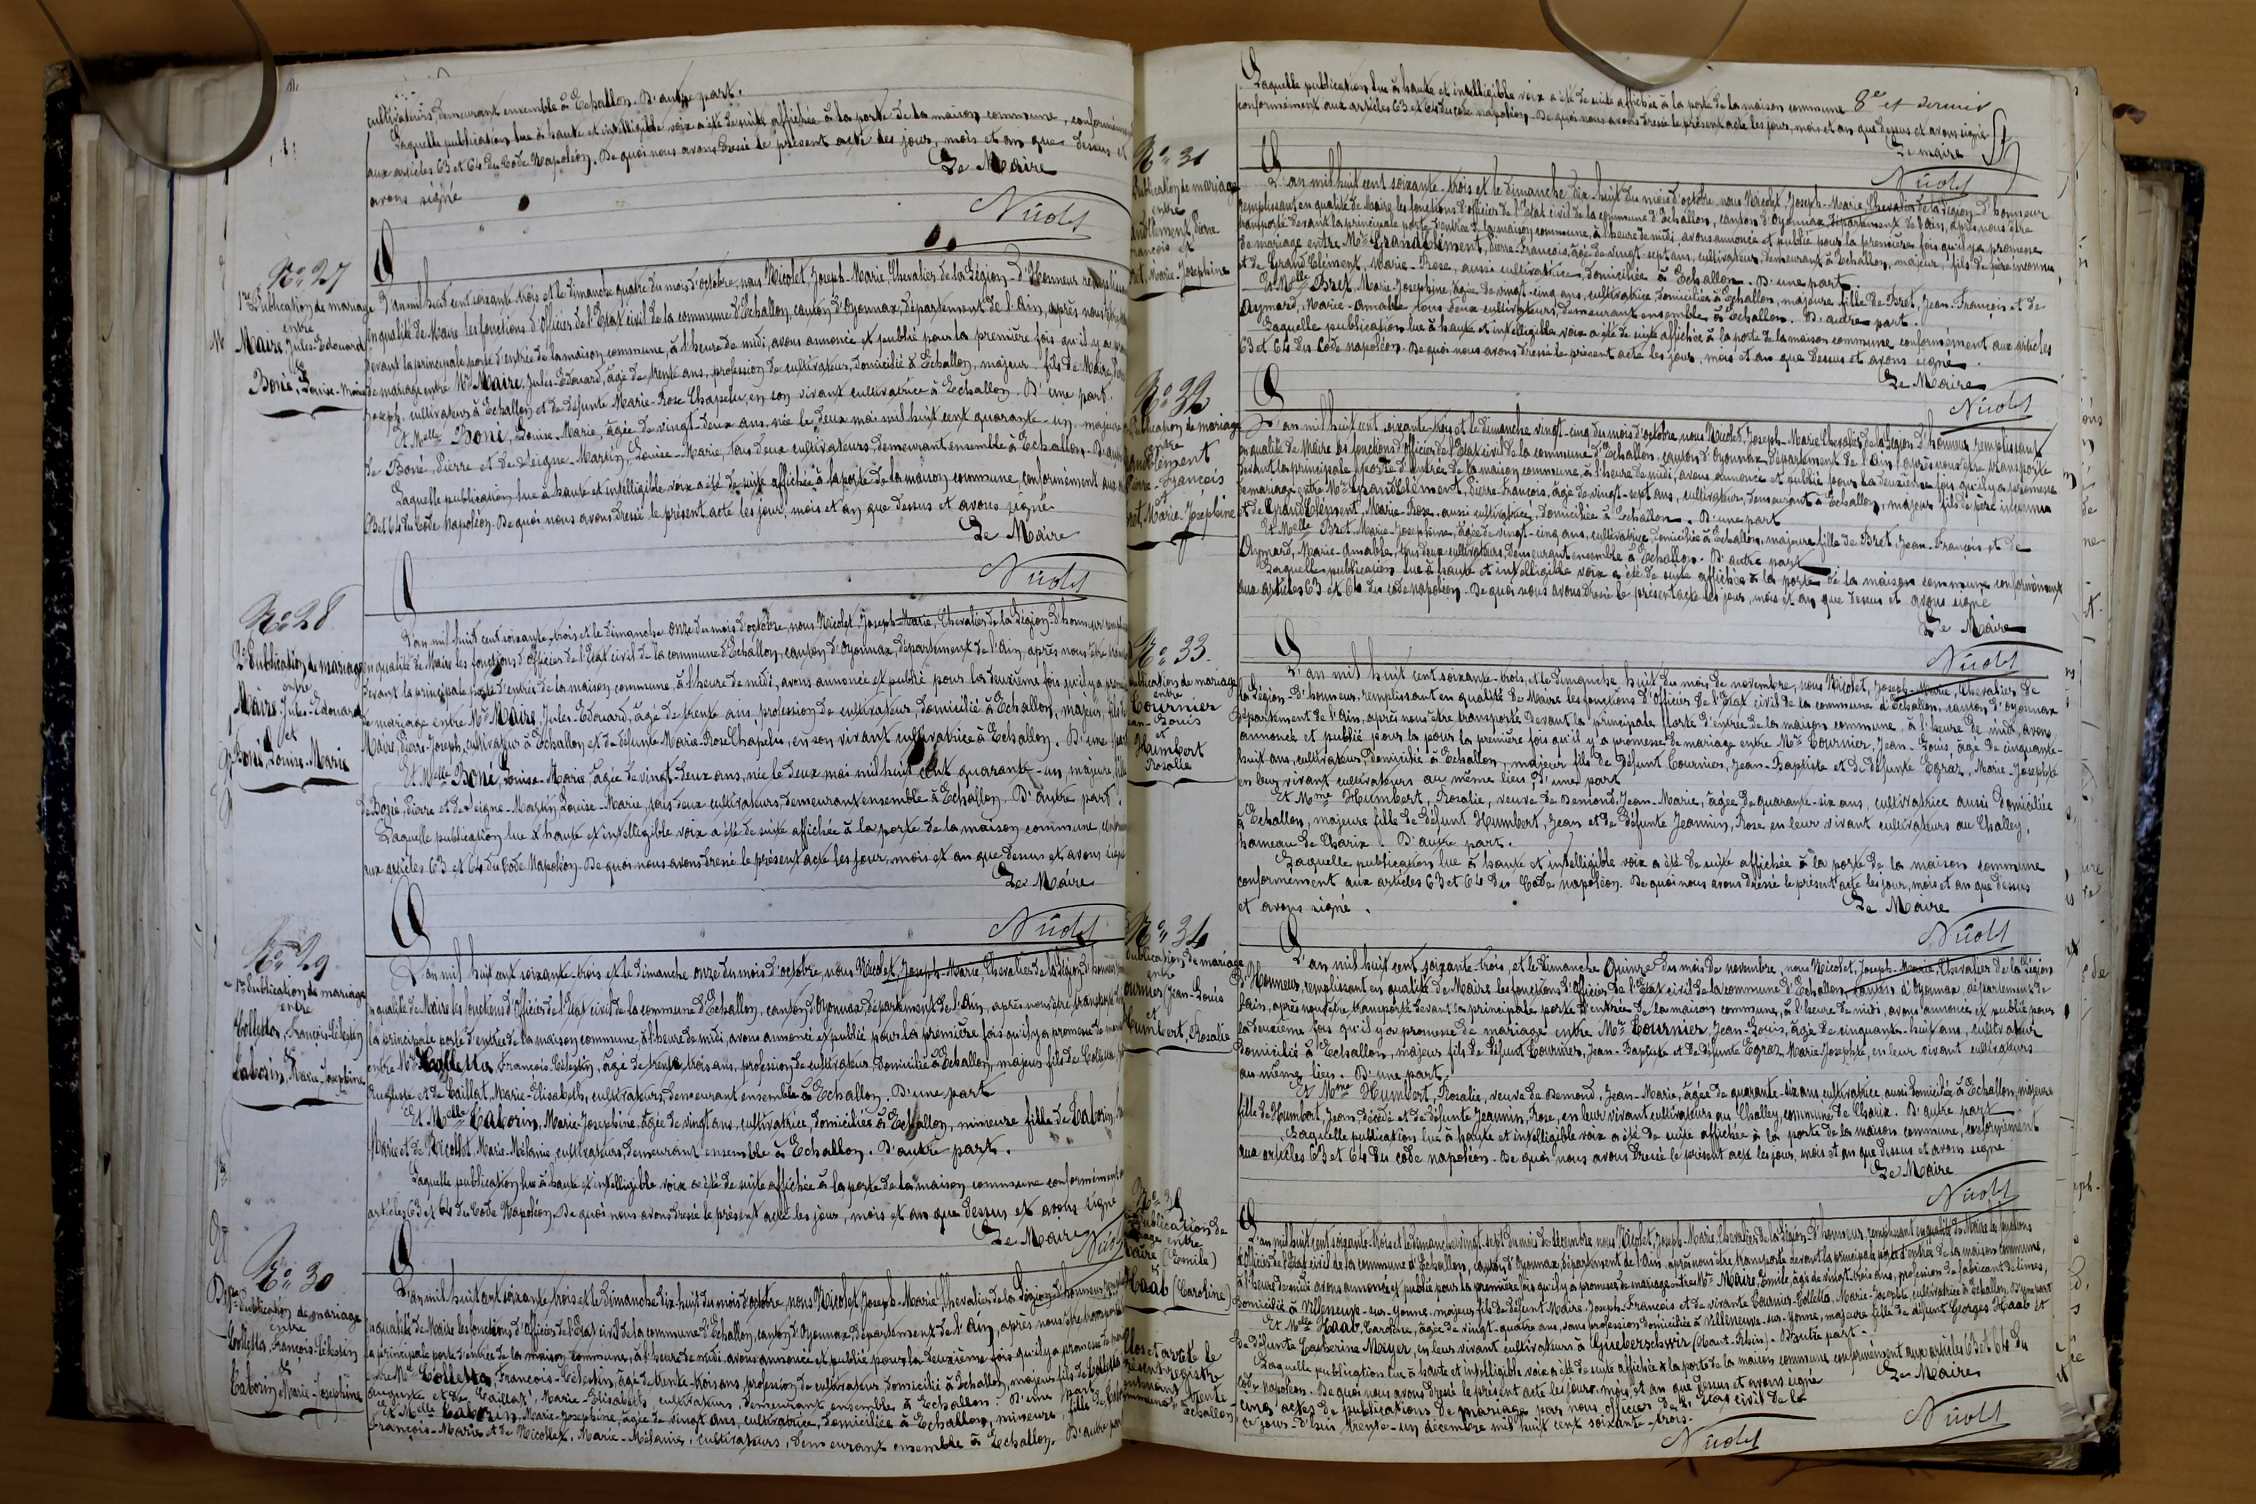 cultivateurs, demeurant ensemble à Echallon. D'autre part.
Laquelle publication lue à haute et intelligible voix a été de suite affichée à la porte de la maison commune, conformément
aux articles 63 et 64 du Code Napoléon. De quoi nous avons dressé le présent acte les jour, mois et an que dessus et
avons signé
Le Maire
Nicolet
N° 27
1re Publication de mariage
entre
Maire, Jules-Edouard
et
Boné, Louise-Marie
L'an mil huit cent soixante-trois et le dimanche quatre du mois d'octobre, nous Nicolet, Joseph-Marie, Chevalier de la Légion-d'Honneur
en qualité de Maire les fonctions d'Officier de l'Etat civil de la commune d'Echallon, canton d'Oyonnax, département de l'Ain, après nous être
devant la principale porte d'entrée de la maison commune, à l'heure de midi, avons annoncé et publié pour la première fois qu'il y a
de mariage entre Mr Maire, Jules-Edouard, âgé de trente ans, profession de cultivateur, domicilié à Echallon, majeur fils de Maire,
Joseph, cultivateur à Echallon et de défunte Marie-Rose Chapelu, en son vivant cultivatrice à Echallon. D'une part.
Et Melle Boné, Louise-Marie, âgée de vingt-deux ans, née le deux mai mil huit cent quarante-un, majeure
de Boné, Pierre et de Seigne-Martin, Louise-Marie, tous deux cultivateurs demeurant ensemble à Echallon. D'autre
Laquelle publication lue à haute et intelligible voix a été de suite affichée à la porte de la maison commune, conformément aux
63 et 64 du Code Napoléon. De quoi nous avons dressé le présent acte les jour, mois et an que dessus et avons signé
Le Maire
Nicolet
N° 28
2e Publication de mariage
entre
Maire, Jules-Edouard
et
Boné, Louise-Marie
L'an mil huit cent soixante-trois et le dimanche onze du mois d'octobre, nous Nicolet Joseph-Marie, Chevalier de la Légion-d'honneur
en qualité de Maire les fonctions d'Officier de l'Etat civil de la commune d'Echallon, canton d'Oyonnax, département de l'Ain, après nous être
devant la principale porte d'entrée de la maison commune, à l'heure de midi, avons annoncé et publié pour la deuxième fois qu'il y a
de mariage entre Mr Maire, Jules-Edouard, âgé de trente ans, profession de cultivateur, domicilié à Echallon, majeur, fils de
Maire, Pierre-Joseph, cultivateur à Echallon et de défunte Marie-Rose Chapelu, en son vivant cultivatrice à Echallon. D'une
Et Melle Boné, Louise-Marie, âgée de vingt-deux ans, née le deux mai mil huit cent quarante-un, majeure fille
de Boné, Pierre et de Seigne-Martin, Louise-Marie, tous deux cultivateurs, demeurant ensemble à Echallon. D'autre part.
Laquelle publication lue à haute et intelligible voix a été de suite affichée à la porte de la maison commune,
aux articles 63 et 64 du Code Napoléon. De quoi nous avons dressé le présent acte les jour, mois et an que dessus et avons signé
Le Maire
Nicolet
N° 29
1re Publication de mariage
entre
Colletta, François-Célestin
et
Taborin, Marie-Josephine
L'an mil huit cent soixante-trois et le dimanche onze du mois d'octobre, nous Nicolet, Joseph-Marie, Chevalier de la Légion d'honneur
en qualité de Maire les fonctions d'Officier de l'Etat civil de la commune d'Echallon, canton d'Oyonnax, département de l'Ain, après nous être transporté
la principale porte d'entrée de la maison commune, à l'heure de midi, avons annoncé et publié pour la première fois qu'il y a promesse de
entre Mr Colletta, François-Célestin, âgé de trente-trois ans, profession de cultivateur, domicilié à Echallon, majeur fils de Colletta,
Auguste et de Caillat, Marie-Elisabeth, cultivateurs, demeurant ensemble à Echallon. D'une part
Et Melle Taborin, Marie-Josephine, âgée de vingt ans, cultivatrice, domiciliée à Echallon, mineure fille de Taborin,
Marie et de Nicollet, Marie-Mélanie, cultivateurs, demeurant ensemble à Echallon. D'autre part.
Laquelle publication lue à haute et intelligible voix a été de suite affichée à la porte de la maison commune conformément
articles 63 et 64 du Code Napoléon. De quoi nous avons dressé le présent acte les jour, mois et an que dessus et avons signé
Le Maire
Nicolet
N° 30
Publication de mariage
entre
Colletta, François-Célestin
et
Taborin, Marie-Josephine
L'an mil huit cent soixante-trois et le dimanche dix-huit du mois d'octobre, nous Nicolet Joseph-Marie Chevalier de la Légion d'honneur
en qualité de Maire les fonctions d'Officier de l'Etat civil de la commune d'Echallon, canton d'Oyonnax département de l'Ain, après nous être
la principale porte d'entrée de la maison commune, à l'heure de midi, avons annoncé et publié pour la deuxième fois qu'il y a promesse de
entre Mr Colletta, François-Célestin, âgé de trente-trois ans, profession de cultivateur domicilié à Echallon, majeur fils de Colletta
Auguste et de Caillat, Marie-Elisabeth, cultivateurs, demeurant ensemble à Echallon. D'une part
Et Melle Taborin, Marie-Josephine, âgée de vingt ans, cultivatrice, domiciliée à Echallon, mineure fille de
François-Marie et de Nicollet, Marie-Mélanie, cultivateurs, demeurant ensemble à Echallon. D'autre part
Laquelle publication lue à haute et intelligible voix a été de suite affichée à la porte de la maison commune 8e et dernier
conformément aux articles 63 et 64 du code napoléon. De quoi nous avons dressé le présent acte les jour, mois et an que dessus et avons signé
Le maire
Nicolet
N° 31
Publication de mariage
entre
Pierre
François et
Bret, Marie-Josephine
L'an mil huit cent soixante-trois et le dimanche dix-huit du mois d'octobre nous Nicolet, Joseph-Marie, Chevalier de la Légion-d'honneur
remplissant en qualité de Maire les fonctions d'officier de l'Etat civil de la commune d'Echallon, canton d'Oyonnax département de l'ain, après nous être
transporté devant la principale porte d'entrée de la maison commune, à l'heure de midi, avons annoncé et publié pour la première fois qu'il y a promesse
de mariage entre Mr Grandclément, Pierre-François, âgé de vingt-sept ans, cultivateur, demeurant à Echallon, majeur, fils de père inconnu,
et de Grandclément, Marie-Rose, aussi cultivatrice, domiciliée à Echallon. D'une part
Et Melle Bret, Marie-Josephine, âgée de vingt-cinq ans, cultivatrice, domiciliée à Echallon, majeure fille de Bret, Jean-François et de
Aymard, Marie-amable, tous deux cultivateurs, demeurant ensemble à Echallon. D'autre part.
Laquelle publication lue à haute et intelligible voix a été de suite affichée à la porte de la maison commune conformément aux articles
63 et 64 du Code napoléon. De quoi nous avons dressé le présent acte les jour, mois et an que dessus et avons signé
Le Maire
Nicolet
N° 32
Publication de mariage
entre
Pierre-François
et
Bret, Marie-Joséphine
L'an mil huit cent soixante-trois et le dimanche vingt-cinq du mois d'octobre, nous Nicolet, Joseph-Marie Chevalier de la Légion d'honneur remplissant
en qualité de Maire les fonctions d'Officier de l'Etat civil de la commune d'Echallon, canton d'Oyonnax, département de l'Ain, après nous être transporté
devant la principale porte d'entrée de la maison commune, à l'heure de midi, avons annoncé et publié pour la deuxième fois qu'il y a promesse
de mariage entre Mr Grandclément, Pierre-François, âgé de vingt-sept ans, cultivateur, demeurant à Echallon, majeur fils de père inconnu
et de Grandclément, Marie-Rose, aussi cultivatrice, domiciliée à Echallon. D'une part
Et Melle Bret, Marie-Josephine, âgée de vingt-cinq ans, cultivatrice, domiciliée à Echallon, majeure fille de Bret, Jean-François et de
Aymard, Marie-Amable, tous deux cultivateurs, demeurant ensemble à Echallon. D'autre part
Laquelle publication lue à haute et intelligible voix a été de suite affichée à la porte de la maison commune conformément
aux articles 63 et 64 du code napoléon. De quoi nous avons dressé le présent acte les jour, mois et an que dessus et avons signé
Le Maire
Nicolet
N° 33
Publication de mariage
entre
Tournier
Jean-Louis
et
Humbert
Rosalie
L'an mil huit cent soixante-trois, et le dimanche huit du mois de novembre, nous Nicolet, Joseph-Marie, Chevalier de
la Légion-d'honneur, remplissant en qualité de Maire les fonctions d'Officier de l'Etat civil de la commune d'Echallon, canton d'Oyonnax
département de l'Ain, après nous être transporté devant la principale porte d'entrée de la maison commune, à l'heure de midi, avons
annoncé et publié pour la pour la première fois qu'il y a promesse de mariage entre Mr Tournier, Jean-Louis âgé de cinquante-
huit ans, cultivateur, domicilié à Echallon, majeur fils de défunt Tournier, Jean-Baptiste et de défunte Egraz, Marie-Josephte
en leur vivant cultivateurs au même lieu, D'une part
Et Mme Humbert, Rosalie, veuve de Demond, Jean-Marie, âgée de quarante-six ans, cultivatrice aussi domiciliée
à Echallon, majeure fille de défunt Humbert, Jean et de défunte Jeannin, Rose en leur vivant cultivateurs au Challey,
hameau de Charix. D'autre part.
Laquelle publication lue à haute et intelligible voix a été de suite affichée à la porte de la maison commune
conformément aux articles 63 et 64 du Code napoléon. De quoi nous avons dressé le présent acte les jour, mois et an que dessus
et avons signé.
Le Maire
Nicolet
N° 34
Publication de mariage
entre
Tournier, Jean-Louis
et
Humbert, Rosalie
L'an mil huit cent soixante-trois, et le dimanche Quinze du mois de novembre, nous Nicolet, Joseph-Marie, Chevalier de la Légion
D'Honneur, remplissant en qualité de Maire les fonctions d'Officier de l'Etat civil de la commune d'Echallon, canton d'Oyonnax, département de
l'ain, après nous être transporté devant la principale porte d'entrée de la maison commune, à l'heure de midi, avons annoncé et publié pour
la deuxième fois qu'il y a promesse de mariage entre Mr Tournier, Jean-Louis, âgé de cinquante-huit ans, cultivateur
domicilié à Echallon, majeur fils de défunt Tournier, Jean-Baptiste et de défunte Egraz Marie-Josephte, en leur vivant cultivateurs
au même lieu. D'une part.
Et Mme Humbert, Rosalie, veuve de Demond, Jean-Marie, âgée de quarante-six ans cultivatrice, aussi domiciliée à Echallon, majeure
fille de Humbert, Jean décédé et de défunte Jeannin, Rose, en leur vivant cultivateurs au Challey, commune de Charix. D'autre part
Laquelle publication lue à haute et intelligible voix a été de suite affichée à la porte de la maison commune, conformément
aux articles 63 et 64 du code napoléon. De quoi nous avons dressé le présent acte les jour, mois et an que dessus et avons signé
Le Maire
Nicolet
Publication de
entre
Maire (Emile)
et
Haab (Caroline)
L'an mil huit cent soixante-trois et le dimanche vingt-sept du mois de décembre nous Nicolet, Joseph-Marie, Chevalier de la Légion-d'honneur, remplissant en qualité de Maire les fonctions
d'Officier de l'Etat civil de la commune d'Echallon, canton d'Oyonnax, département de l'Ain, après nous être transporté devant la principale porte d'entrée de la maison commune,
à l'heure de midi avons annoncé et publié pour la première fois qu'il y a promesse de mariage entre Mr Maire, Emile, âgé de vingt-trois ans, profession de fabricant de limes,
domicilié à Villeneuve-sur-Yonne, majeur fils de défunt Maire, Joseph-François et de vivante Tournier-Colletta, Marie-Josephte, cultivatrice à Echallon. D'une part
Et Melle Haab, Caroline, âgée de vingt-quatre ans, sans profession domiciliée à Villeneuve-sur-Yonne, majeure fille de défunt Georges Haab et
de défunte Catherine Meyer, en leur vivant cultivateurs à Gueberschwir (Haut-Rhin). D'autre part.
Laquelle publication lue à haute et intelligible voix a été de suite affichée à la porte de la maison commune conformément aux articles 63 et 64 du
code Napoléon. De quoi nous avons dressé le présent acte les jour, mois, et an que dessus et avons signé
Le Maire
Clos et arrêté le
présent registre
contenant trente
cinq actes de publications de mariage par nous officier de l'Etat civil de la
commune d'Echallon
ce jour-d'hui trente-un décembre mil huit cent soixante-trois.
Nicolet
Nicolet